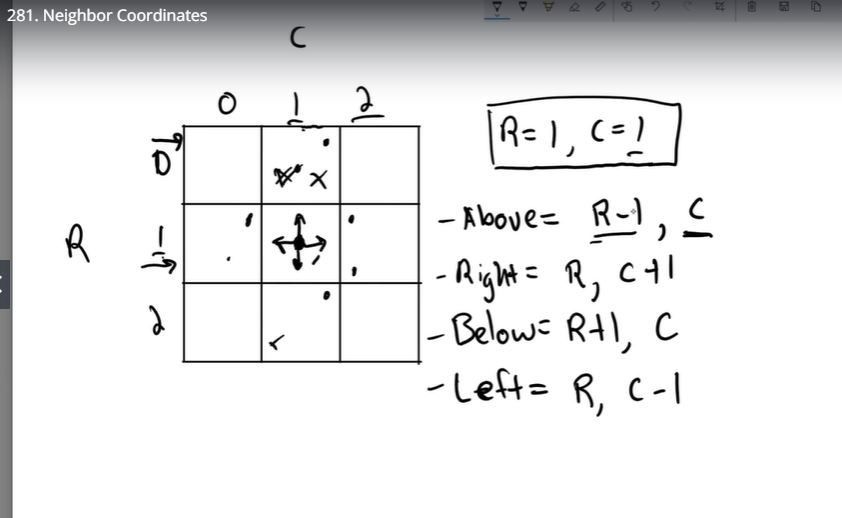 281. Neighbor Coordinates
C
0 1 2
0
R 1
2
R=1, C=1
- Above= R-1, C
- Right= R, C+1
- Below= R+1, C
- Left= R, C-1